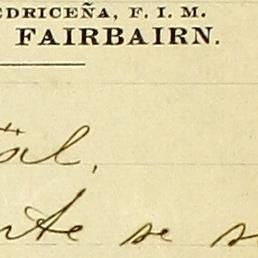 EDRICEÑA, F. I. M.
FAIRBAIRN.
al,
nte se s